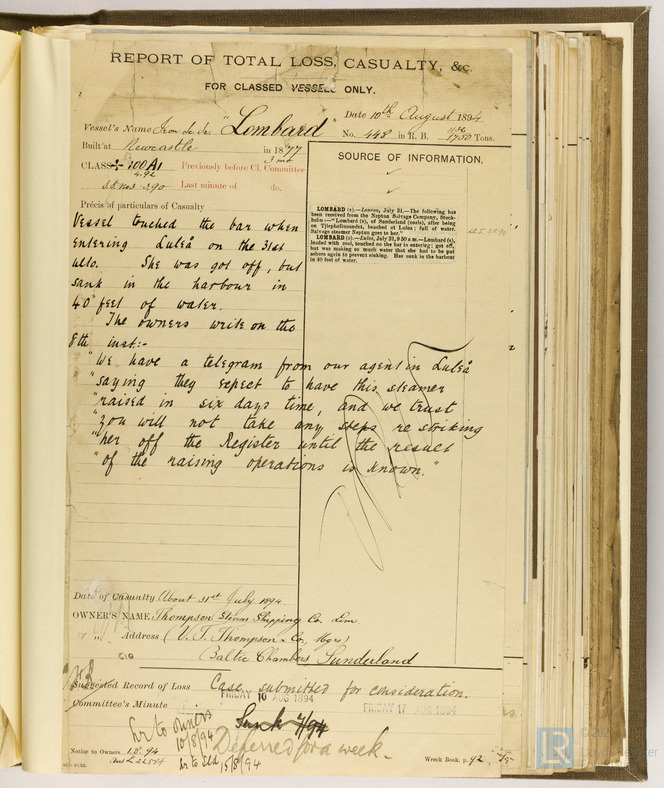 REPORT OF TOTAL LOSS, CASUALTY, &c.
FOR CLASSED VESSELS ONLY.
Date 10th August 1894
Vessel's Name Iron Sc Sr "Lombard"
No. 448 in R. B. Tons.
Built at Newcastle in 1877
3 mo
CLASS 100A1 Previously before Cl. Committee
4.92
Last minute of do.
SOURCE OF INFORMATION.
LOMBARD (s).—London, July 31.—The following has
been received from the Neptun Salvage Company, Stock-
holm:—"Lombard (s), of Sunderland (coals), after being
on Tjufholmsundet, beached at Lulea; full of water.
Salvage steamer Neptun goes to her."
LOMBARD (s).—Lulea, July 31, 9 30 a.m.—Lombard (s),
loaded with coal, touched on the bar in entering; got off,
but was making so much water that she had to be put
ashore again to prevent sinking. Has sunk in the harbour
in 40 feet of water.
Précis of particulars of Casualty
Vessel touched the bar when
entering Luleå on the 31st
ulto. She was got off, but
sank in the harbour in
40 feet of water.
The owners write on the
8th inst:-
"We have a telegram from our agent in Luleå
"saying they expect to have this steamer
"raised in six days time, and we trust
"you will not take any steps re striking
"her off the Register until the result
"of the raising operations is known."
Date of Casualty About 31st July 1894
OWNER'S NAME Thompson Steam Shipping Co. Lim
" " Address (V. T. Thompson & Co, Mgrs)
Baltic Chambers Sunderland
Suggested Record of Loss Case submitted for consideration.
Committee's Minute FRIDAY 10 AUG 1894 FRIDAY 17 AUG 1894
Lr to owners
10/8/94
Sunk 7/94
Deferred for a week
Lr to Sld 15/8/94
Notice to Owners 1.8.94
Wreck Book, p. 92